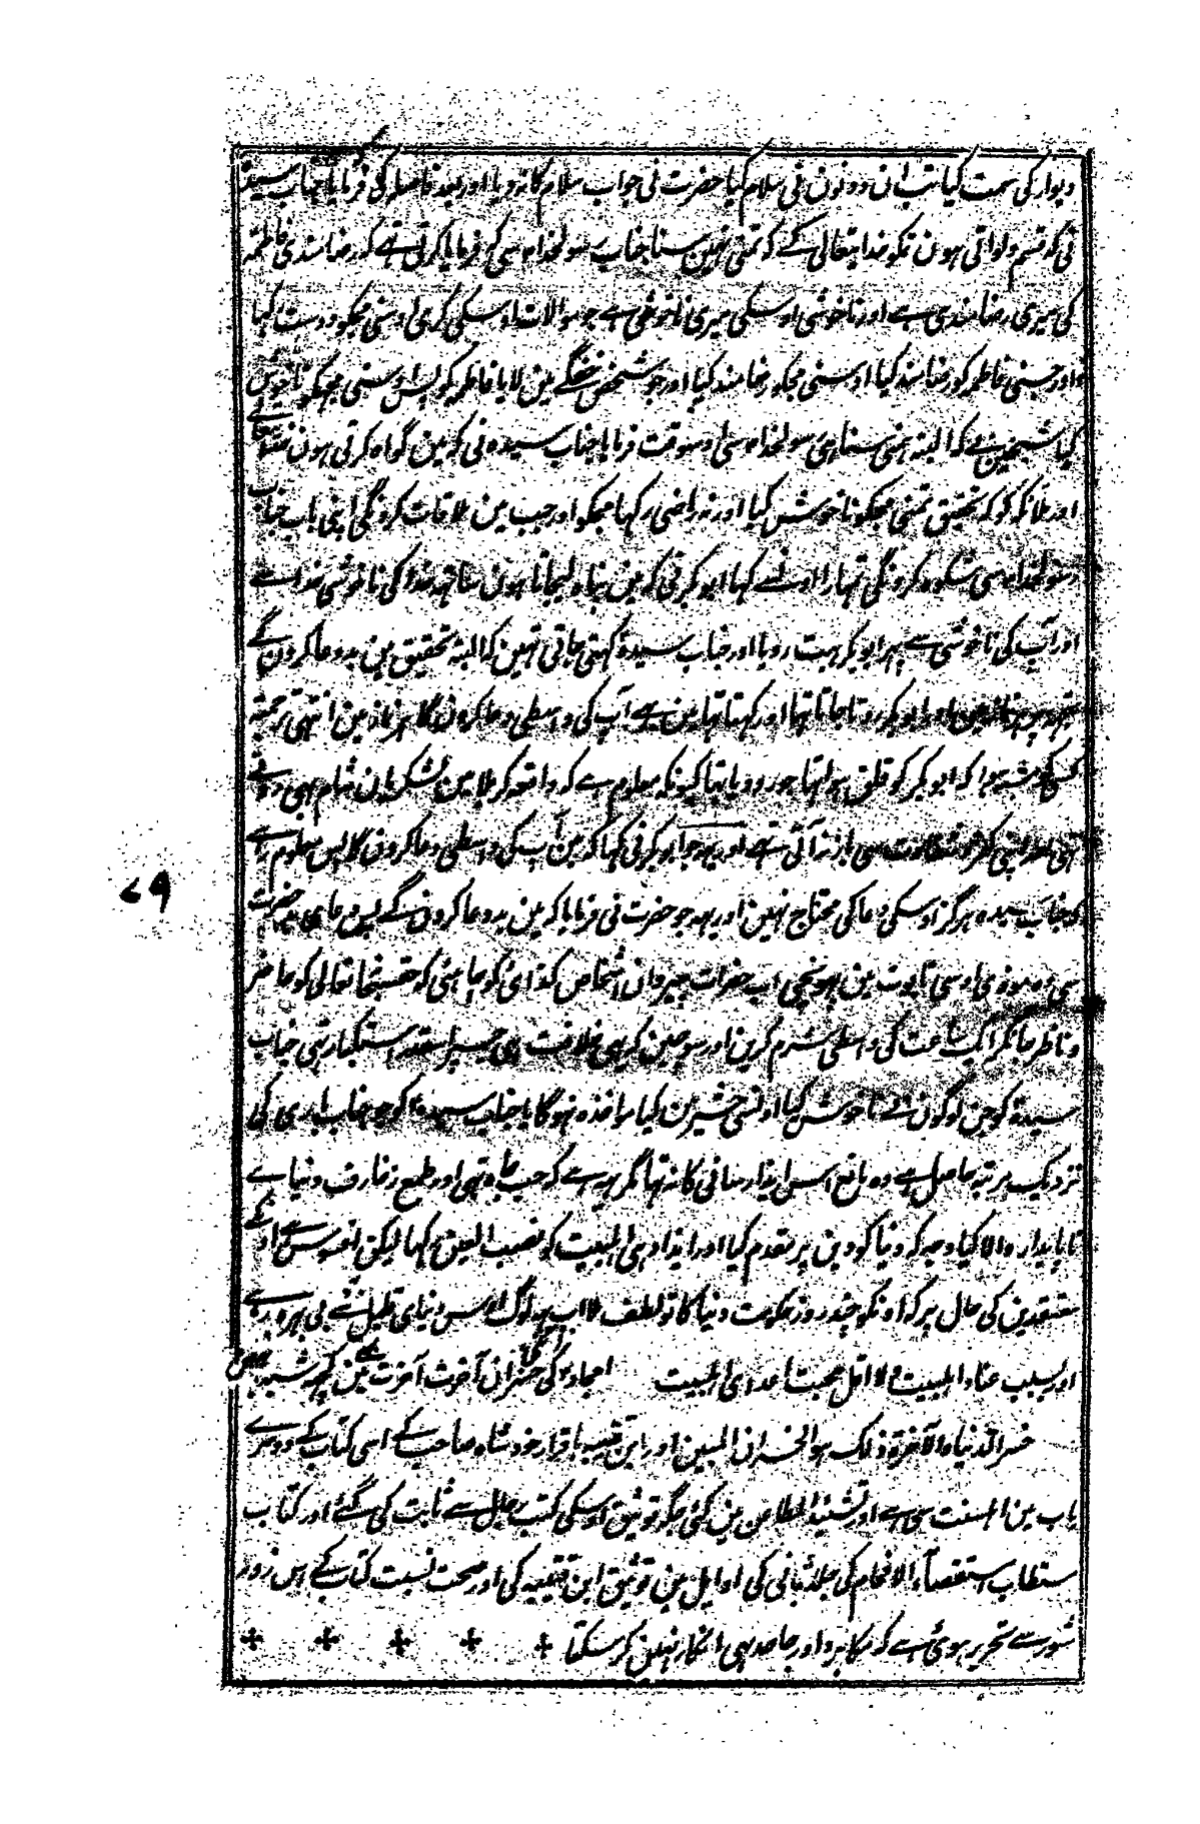 دیوار کی سمت کیا تب ان دونون نی سلام کیا حضرت نی جواب سلام کا ندیا اور بعد فرمایا جناب سیدہ
نی کہ قسم دلواتی ہون تمکو خدایتعالی کے کہ تمنی نہین سنا جناب رسولخدا سی کہ فرمایا کرتی تہے کہ رضامندی فاطمہ
کی میری رضامندی ہے اور ناخوشی اوسکی میری ناخوشی ہے جو موالات اوسکی کری اوسنی مجکو دوست کیا
اور جسنی فاطمہ کو رضامند کیا اوسنی مجکو رضامند کیا اور جو شخص خفگے مین لایا فاطمہ کو پس اوسنی مجہکو ناخوش
کیا شیخین نے کہ البتہ ہمنی سنا ہی رسولخدا سی اوسوقت فرمایا جناب سیدہ نی کہ مین گواہ کرتی ہون
اور ملائکہ کو کہ تحقیق تمنی مجکو ناخوش کیا اور نہ راضی رکہا مجکو اور جب مین ملاقات کرونگی اپنی باپ جناب
رسولخدا سی شکوہ کرونگی تمہارا اونسے کہا ابوبکر نی کہ مین پناہ لیجاتا ہون ساتہہ خدا کی ناخوشی خدا سے
اور آپ کی ناخوشی سے پہر ابوبکر بہت رویا اور جناب سیدہ کہتی جاتی تہین کہ البتہ تحقیق مین بددعا کرون گے
تجہہ پر ہر نماز مین اور ابوبکر روتا جاتا تہا اور کہتا تہا مین آپ کی واسطی دعا کرون گا ہر نماز مین انتہی ترجمتہ
ہوا کہ ابوبکر کو قلق ہوا تہا جو رویا تہا کیونکہ معلوم ہے کہ واقعہ کربلا مین لشکریان شام بہی روتے
تہی اور اپنی سی باز نہ آتی تہے اور یہہ جو ابوبکر نی کہا کہ مین آپ کی واسطی دعا کرون گا پس معلوم ہے
کہ جناب سیدہ ہرگز اوسکی دعا کی محتاج نہین اور یہہ جو حضرت نی فرمایا کہ مین بددعا کرون گے پس
اب حضرات پیروان اشخاص کذائی کو چاہئی کہ حقسبحانہ تعالی کو حاضر
و ناظر جانکر ایک ساعت کی واسطی شرم کرین اور سوچین کہ یہی خلافت ہی جسپر اسقدر استکبار تہی جناب
سیدہ کو جن لوگون نے ناخوش کیا اونسی حشر مین کیا مواخذہ نہوگا یا جناب سیدہ کو جو جناب باری کی
نزدیک مرتبہ حاصل ہے وہ مانع اس ایذا رسانی کا نہ تہا مگر یہہ ہے کہ حب جاہ تہی اور طمع زخارف دنیاے
ناپایدار والا کیا وجہ کہ دنیا کو دین پر مقدم کیا اور ایذا دہی اہلبیت کو نصب العین رکہا لیکن افسوس ہے اونکے
معتقدین کی حال پر کہ اونکو چند روز حکومت دنیا کا تو لطف ملا اب یہہ لوگ اوس دنیای قلیل سے بی بہرہ رہے
اور بسبب عناد اہلبیت و لا اقل محبت اعدای اہلبیت
خسر الدنیا والآخرۃ ذلک ہو الخسران المبین اور ابن قتیبہ باقرار خود شاہ صاحب کے اسی کتاب کے دوسرے
باب مین اہلسنت سی ہے اور تشئید المطاعن مین کئی جگہ توثیق اوسکی کتب رجال سے ثابت کی گئے اور کتاب
مستطاب استقصاء الافحام کی جلد ثانی کی اوایل مین توثیق ابن قتیبہ کی اور صحت نسبت کتاب کے اس زور
شور سے تحریر ہوئی ہے کہ مکابر اور جاحد بہی انکار نہین کر سکتا
۷۹